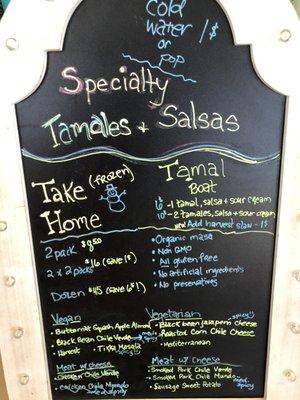 Cold
water 1/$
or
pop
Specialty
Tamales + Salsas
Take (frozen)
Home
2 pack $8.50
2 x 2 packs $16 (save 1$)
Dozen $45 (save 6$!)
Tamal
Boat
- 1 tamal, salsa + sour cream
10$ - 2 tamales, salsa + sour cream
Add harvest slaw - 1$
• Organic masa
• Non GMO
• All gluten free
• No artificial ingredients
• No preservatives
Vegan
• Butternut Squash Apple Almond
• Black Bean Chile Verde
• Harvest • Tikka Masala
Meat w/ cheese
• Chicken Chile Verde
• Chicken Chile Mundo
Vegetarian
• Black bean jalapeno cheese
• Roasted Corn Chile Cheese
• Mediterranean
Meat w/ cheese
• Smoked Pork Chile Verde
• Smoked Pork Chile Mundo
• Sausage Sweet Potato